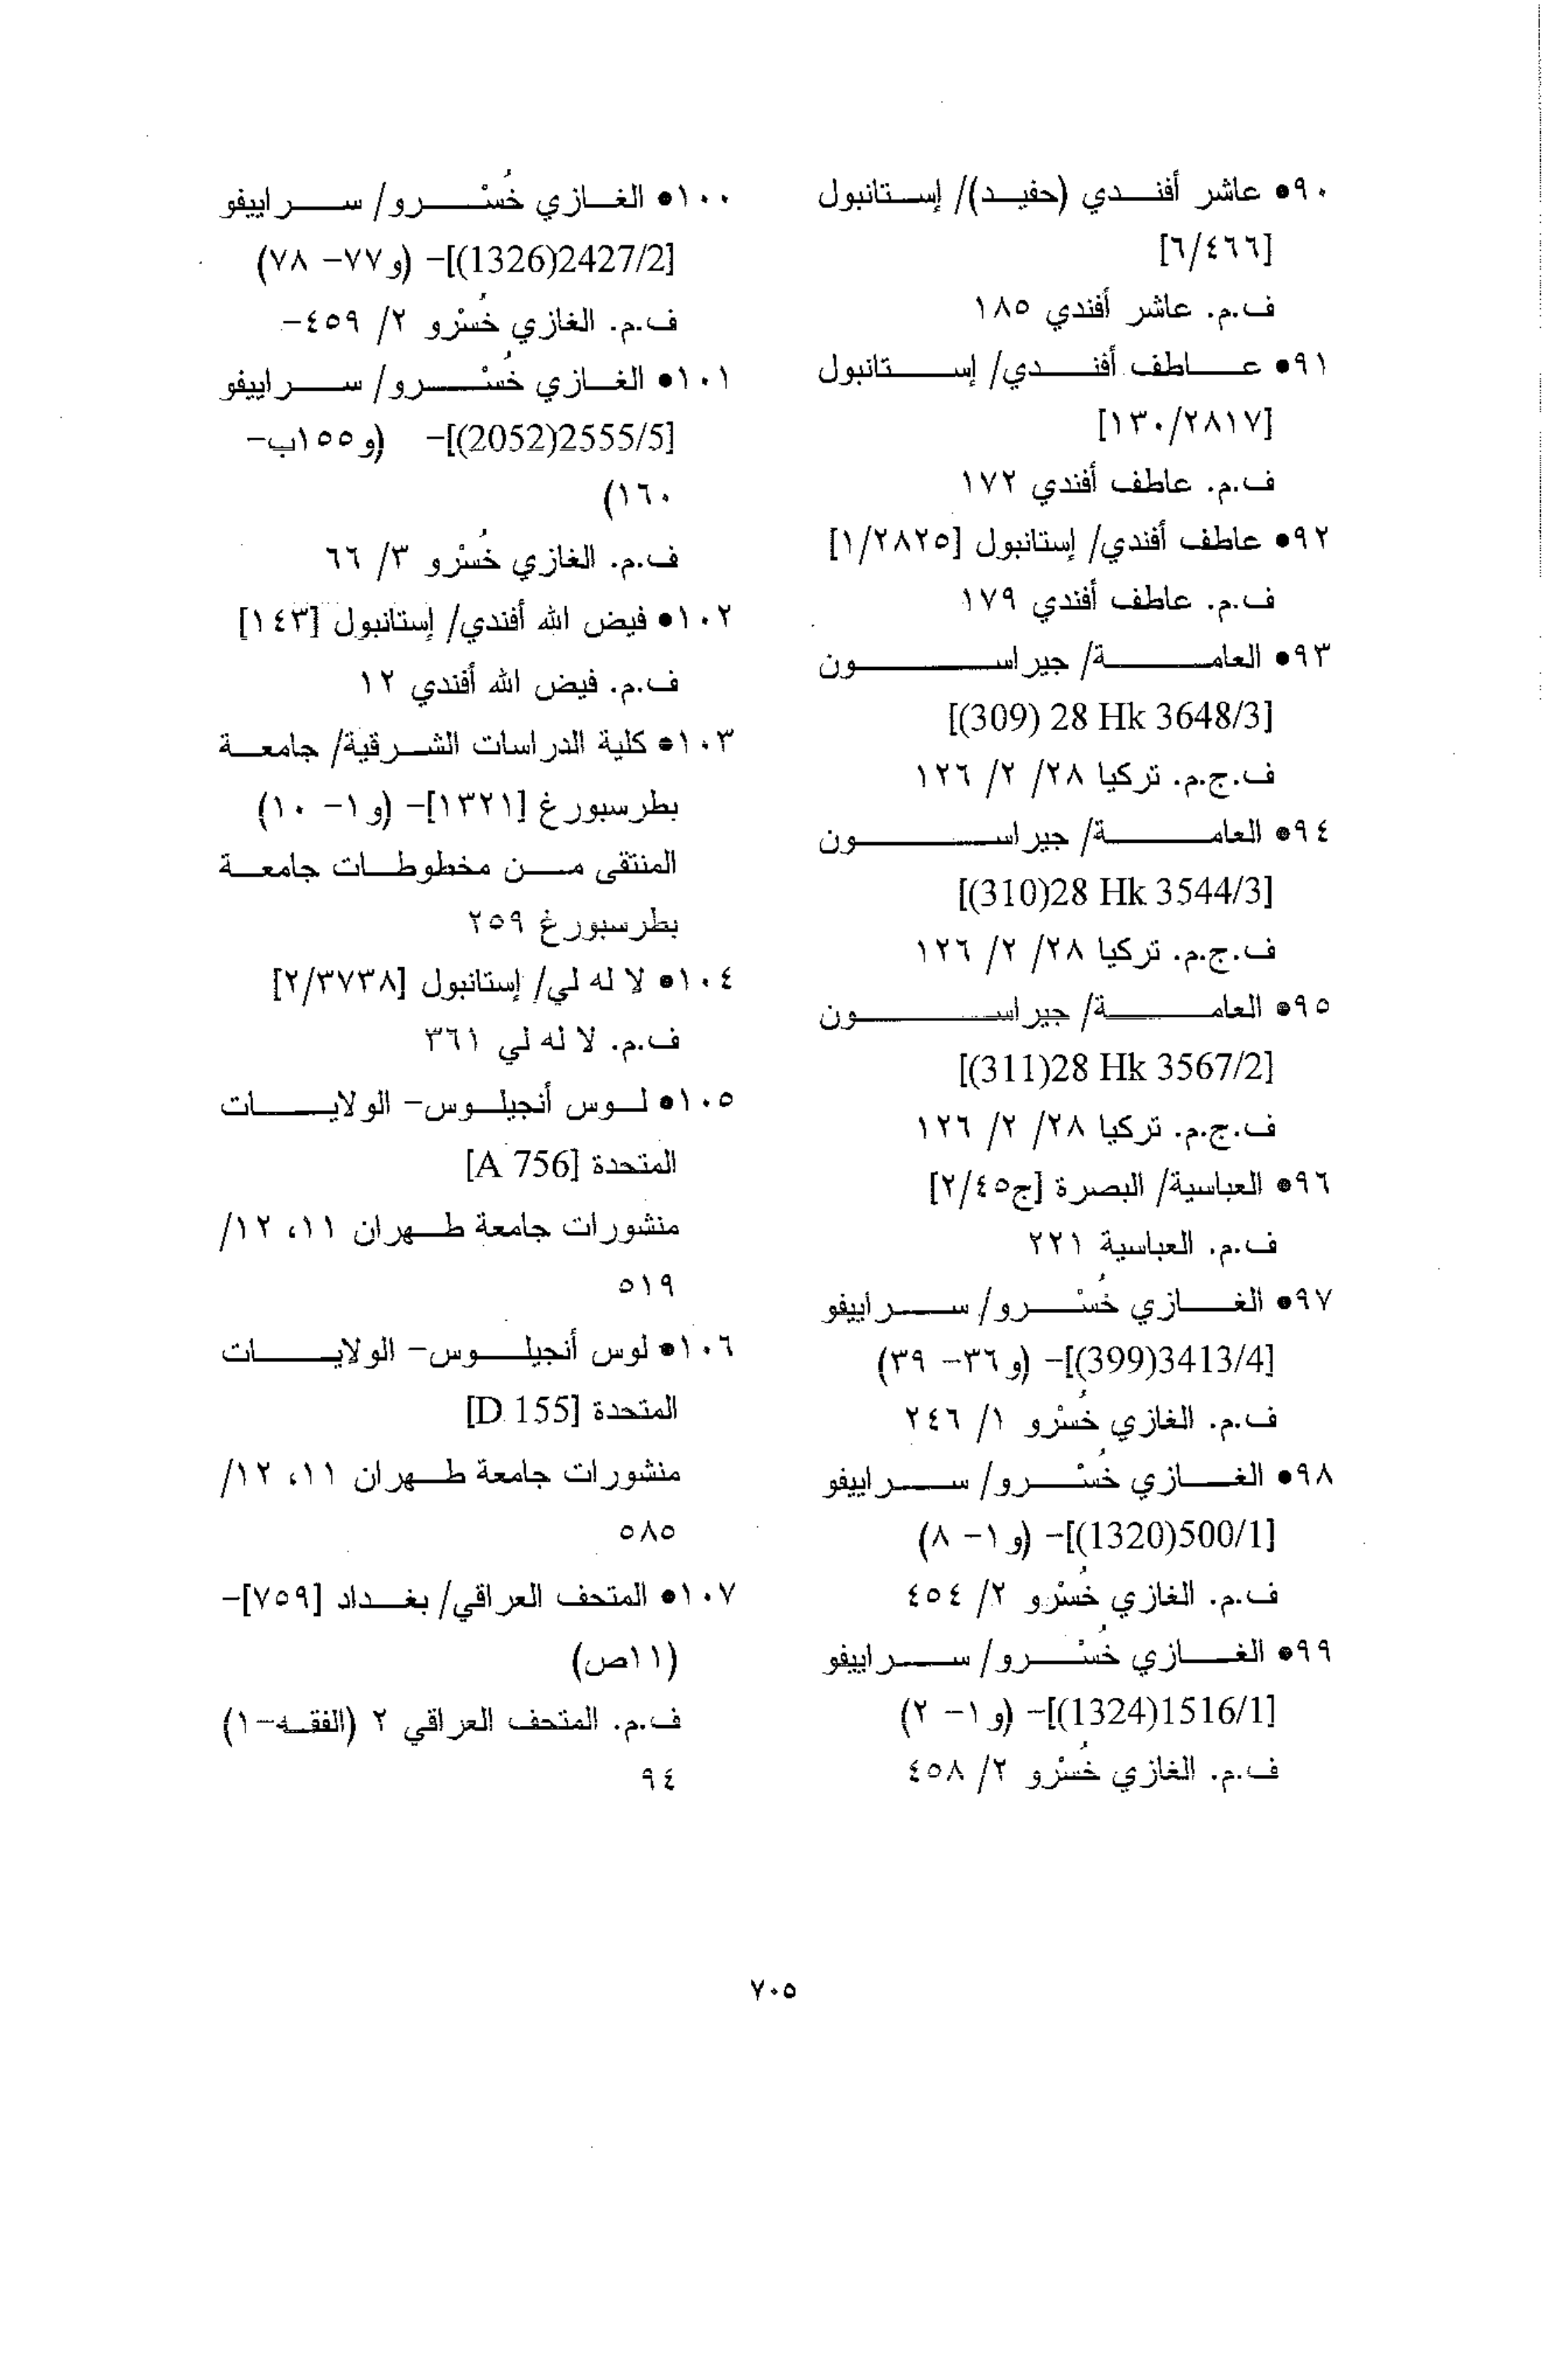 ٩٠• عاشر أفندي (حفيد)/ إستانبول
[٦/٤٦٦]
ف.م. عاشر أفندي ١٨٥
٩١• عاطف أفندي/ إستانبول
[١٣٠/٢٨١٧]
ف.م. عاطف أفندي ١٧٢
٩٢• عاطف أفندي/ إستانبول [١/٢٨٢٥]
ف.م. عاطف أفندي ١٧٩
٩٣• العامة/ جيراسون
[(309) 28 Hk 3648/3]
ف.ج.م. تركيا ٢٨/ ٢/ ١٢٦
٩٤• العامة/ جيراسون
[(310)28 Hk 3544/3]
ف.ج.م. تركيا ٢٨/ ٢/ ١٢٦
٩٥• العامة/ جيراسون
[(311)28 Hk 3567/2]
ف.ج.م. تركيا ٢٨/ ٢/ ١٢٦
٩٦• العباسية/ البصرة [ج٢/٤٥]
ف.م. العباسية ٢٢١
٩٧• الغازي خُسْرو/ سراييفو
[3413/4(399)]- (و٣٦- ٣٩)
ف.م. الغازي خُسْرو ١/ ٢٤٦
٩٨• الغازي خُسْرو/ سراييفو
[500/1(1320)]- (و١- ٨)
ف.م. الغازي خُسْرو ٢/ ٤٥٤
٩٩• الغازي خُسْرو/ سراييفو
[1516/1(1324)]- (و١- ٢)
ف.م. الغازي خُسْرو ٢/ ٤٥٨
١٠٠• الغازي خُسْرو/ سراييفو
[2427/2(1326)]- (و٧٧- ٧٨)
ف.م. الغازي خُسْرو ٢/ ٤٥٩-
١٠١• الغازي خُسْرو/ سراييفو
[2555/5(2052)]- (و١٥٥ب-
١٦٠)
ف.م. الغازي خُسْرو ٣/ ٦٦
١٠٢• فيض الله أفندي/ إستانبول [١٤٣]
ف.م. فيض الله أفندي ١٢
١٠٣• كلية الدراسات الشرقية/ جامعة
بطرسبورغ [١٣٢١]- (و١- ١٠)
المنتقى من مخطوطات جامعة
بطرسبورغ ٢٥٩
١٠٤• لا له لي/ إستانبول [٢/٣٧٣٨]
ف.م. لا له لي ٣٦١
١٠٥• لوس أنجيلوس- الولايات
المتحدة [A 756]
منشورات جامعة طهران ١١، ١٢/
٥١٩
١٠٦• لوس أنجيلوس- الولايات
المتحدة [D 155]
منشورات جامعة طهران ١١، ١٢/
٥٨٥
١٠٧• المتحف العراقي/ بغداد [٧٥٩]-
(١١ص)
ف.م. المتحف العراقي ٢ (الفقه-١)
٩٤
٧٠٥